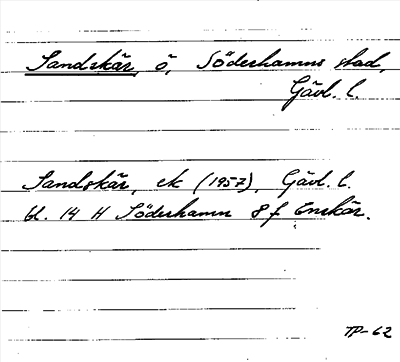 Sandskär, ö, Söderhamns stad,
Gävl. l.
Sandskär, ek (1957), Gävl. l.
bl. 14 H Söderhamn 8 f Enskär.
TP-62